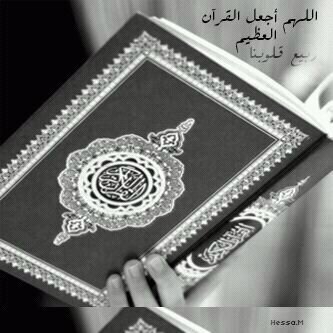 اللهم أجعل القرآن
العظيم
ربيع قلوبنا
القرآن الكريم
Hessa.M